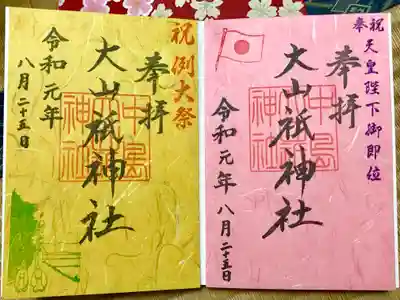 奉祝
天皇陛下御即位
奉拝
大山祇神社
中島
神社
令和元年八月二十五日
祝例大祭
奉拝
大山祇神社
中島
神社
令和元年
八月二十五日